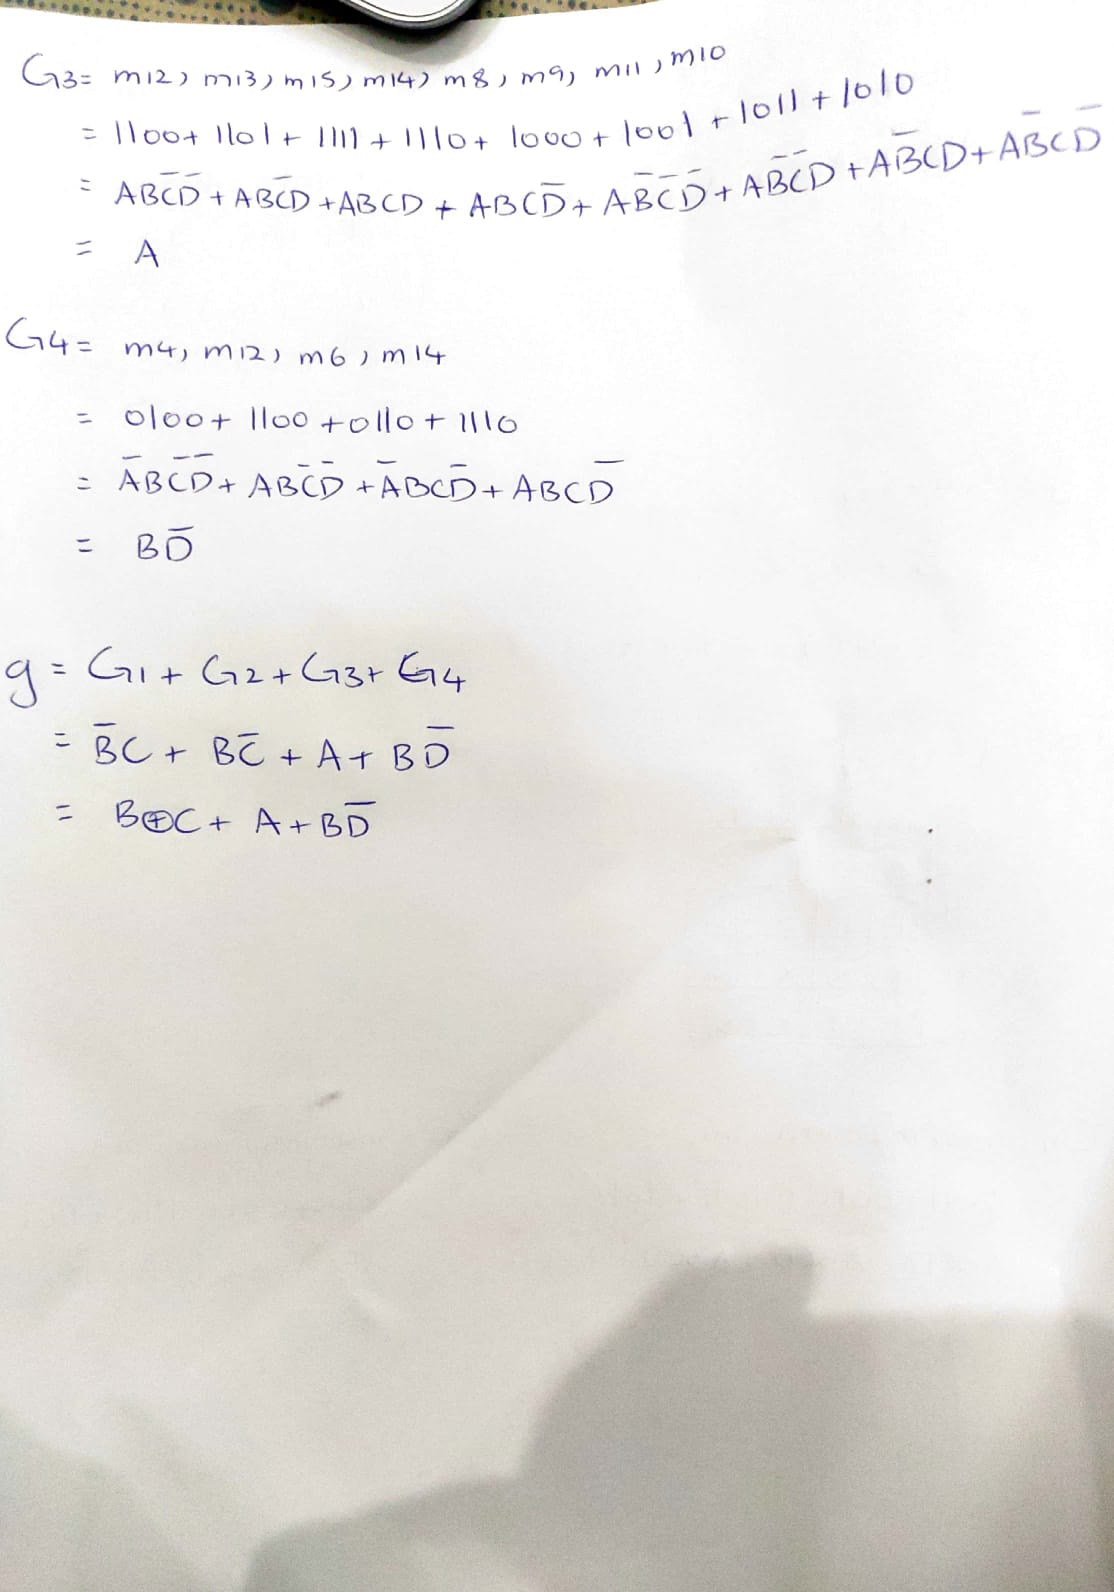 G3= m12, m13, m15, m14, m8, m9, m11, m10
= 1100+ 1101+ 1111+ 1110+ 1000+ 1001+ 1011+ 1010
= ABC̅D̅ + ABC̅D + ABCD + ABCD̅ + AB̅C̅D̅ + AB̅C̅D + AB̅CD + AB̅CD̅
= A
G4= m4, m12, m6, m14
= 0100+ 1100 +0110+ 1110
= A̅BC̅D̅ + ABC̅D̅ + A̅BCD̅ + ABCD̅
= BD̅
g = G1+ G2+ G3+ G4
= B̅C + BC̅ + A+ BD̅
= B⊕C+ A+BD̅